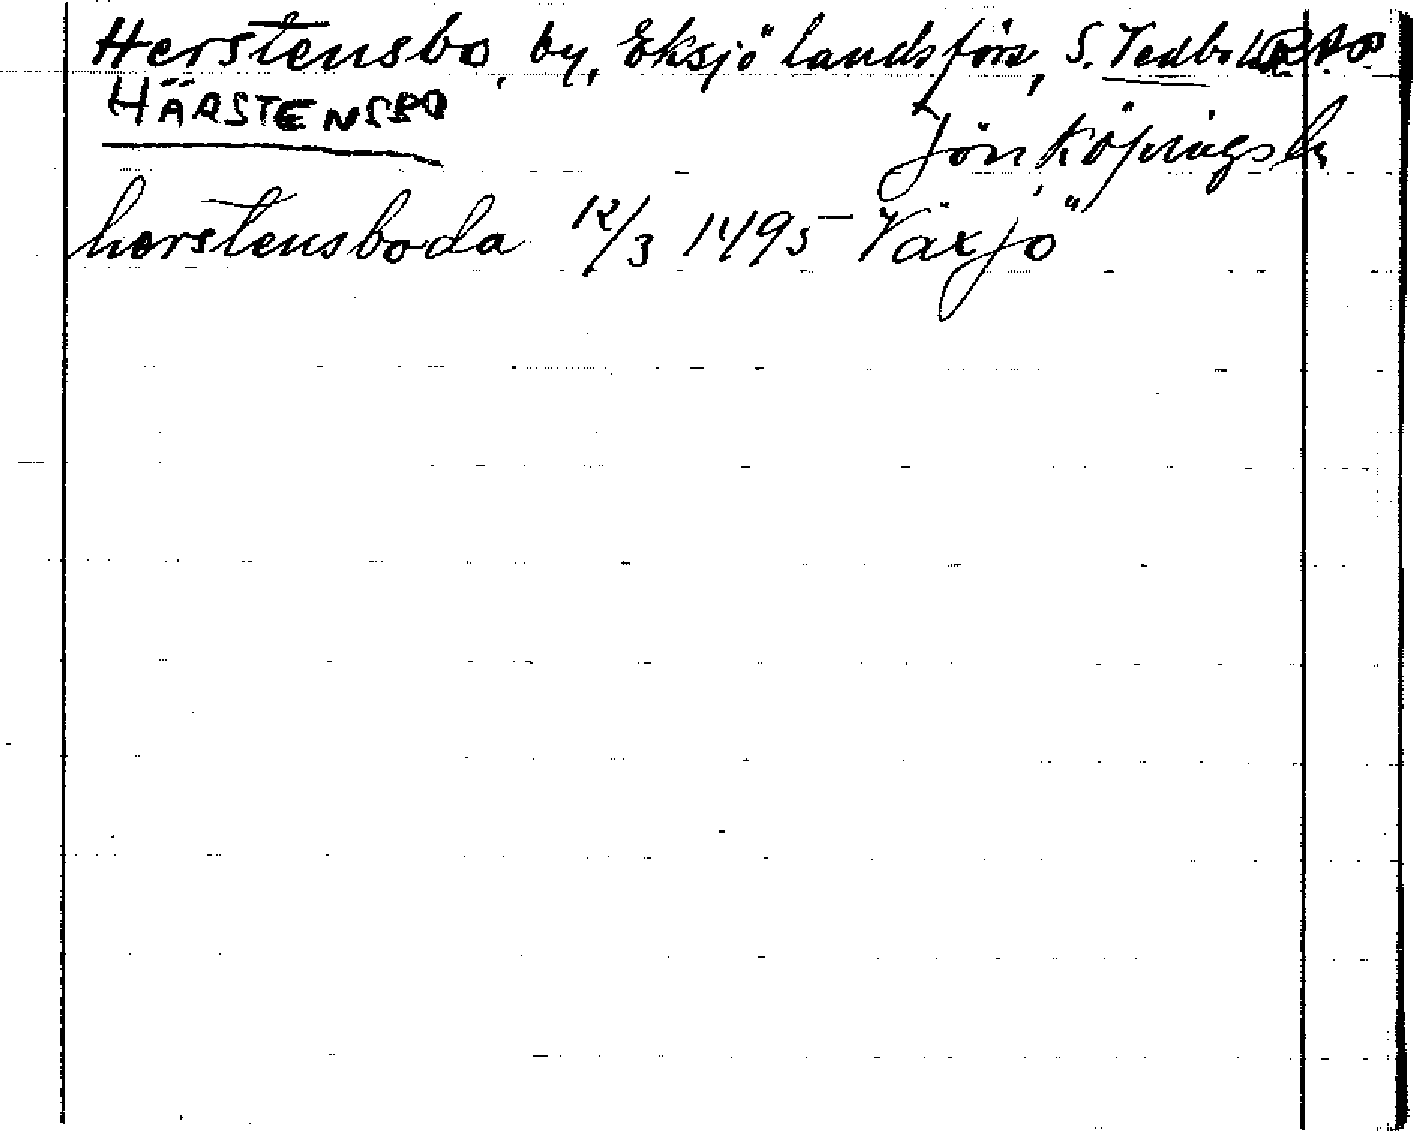 Herstensbo, by, Eksjö landsförs, S. Vedbo hd
HÄRSTENSBO
Jönköpings l.
herstensboda 12/3 1495 Växjö